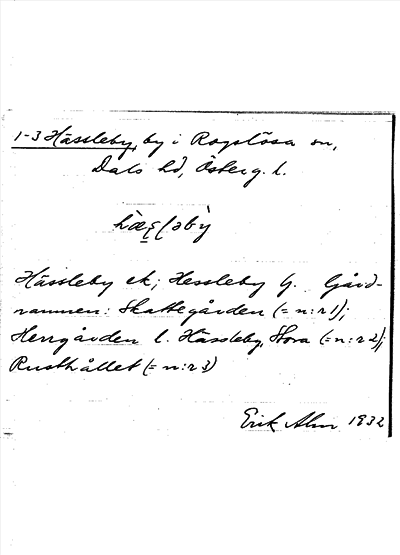 1-3 Hässleby, by i Rogslösa sn,
Dals hd, Österg. l.
Hässleby ek; Hessleby G. Gård-
namnen: Skattegården (= n:r 1);
Herrgården l. Hässleby, Stora (= n:r 2);
Rusthållet (= n:r 3)
Erik Alm 1932